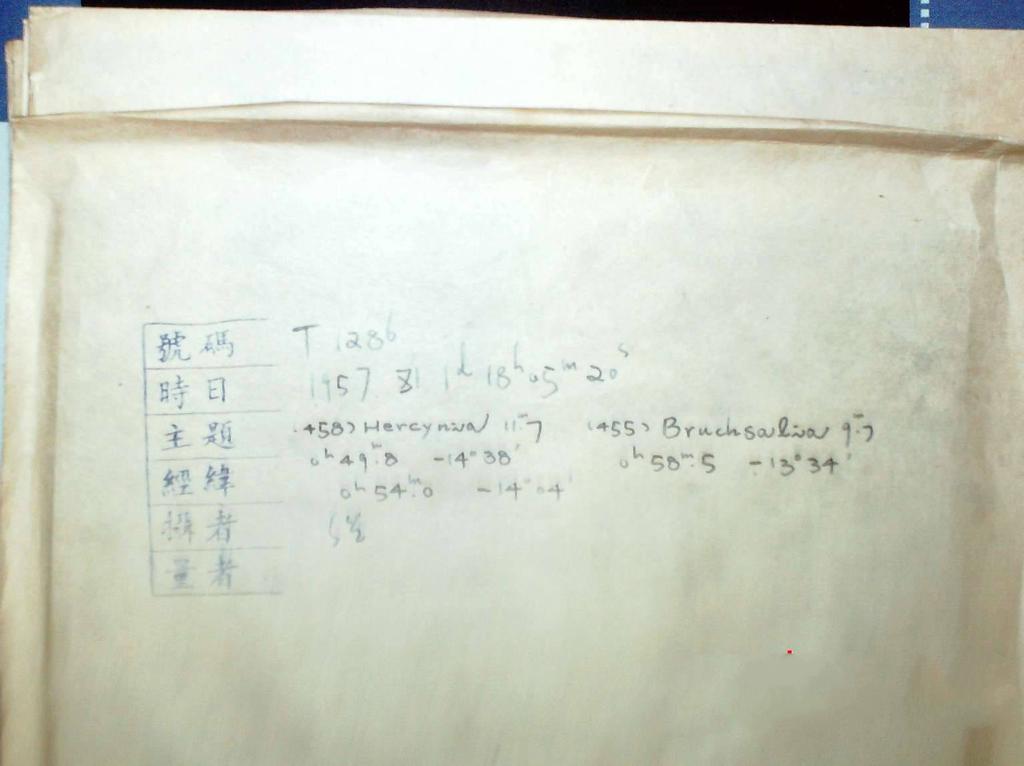 號碼 T 1286
時日 1957 8 1 1d 18h 05m 20s
主題 (458) Hercynia 11m.7 (455) Bruchsalia 9m.7
經緯 0h 49m.8 -14°38' 0h 58m.5 -13°34'
0h 54m.0 -14°04'
攝者
量者